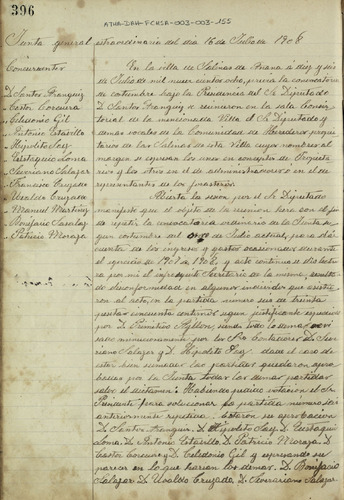 396
ATHA-DAH-FCHSA-003-003-155
Junta general extraordinaria del dia 16 de Julio de 1908
Concurrentes
D. Santos Franquiz
Castor Corcuera
Celedonio Gil
Antonio Estavillo
Hipolito Saez
Eustaquio Loma
Severiano Salazar
Francisco Cruzado
Uvaldo Cruzado
Manuel Martinez
Bonifacio Salazar
Patricio Moraza
En la villa de Salinas de Añana a diez y seis
de Julio de mil nueve cientos ocho, previa la convocatoria
de costumbre bajo la Presidencia del Sr. Diputado
D. Santos Franquiz se reunieron en la sala Consis
torial de la mencionada Villa el Sr. Diputado y
demas vocales de la Comunidad de Herederos propie
tarios de las Salinas de esta Villa cuyos nombres al
margen se espresan los unos en concepto de Propieta
rios y los otros en el de administradores o en el de
representantes de los propietarios.
Abierta la sesion por el Sr. Diputado
manifestó que el objeto de la reunion hera con
segun costumbre del de Julio actual, para dis
cutir de los ingresos y gastos ocasionados durante
el ejercicio de 1907 a 1908, y acto continuo se
por mi el infrascrito Secretario de la misma,
de desconformidad en algunos individuos que asistie
ron al acto, en la partida numero seis de treinta
pesetas cincuenta centimos segun justificante espedido
por D. Primitivo Ayllon, siendo todo lo demas revi
sado minuciosamente por los Sres Contadores D. Seve
riano Salazar y D. Hipolito Saez dada el caso de
estar bien sumadas las partidas quedaron apro
badas por la Junta todas las demas partidas
salvo el dictamen. Habiendo pedido votacion el Sr.
Presidente para solucionar la partida numero seis
anteriormente repetida. Votaron su aprovacion
D. Santos Franquiz, D. Hipolito Saez, D. Eustaquio
Loma, D. Antonio Estavillo, D. Patricio Moraza, D.
Castor Corcuera y D. Celedonio Gil y espresando su
parecer en lo que harian los demas. D. Bonifacio
Salazar, D. Uvaldo Cruzado, D. Severiano Salazar